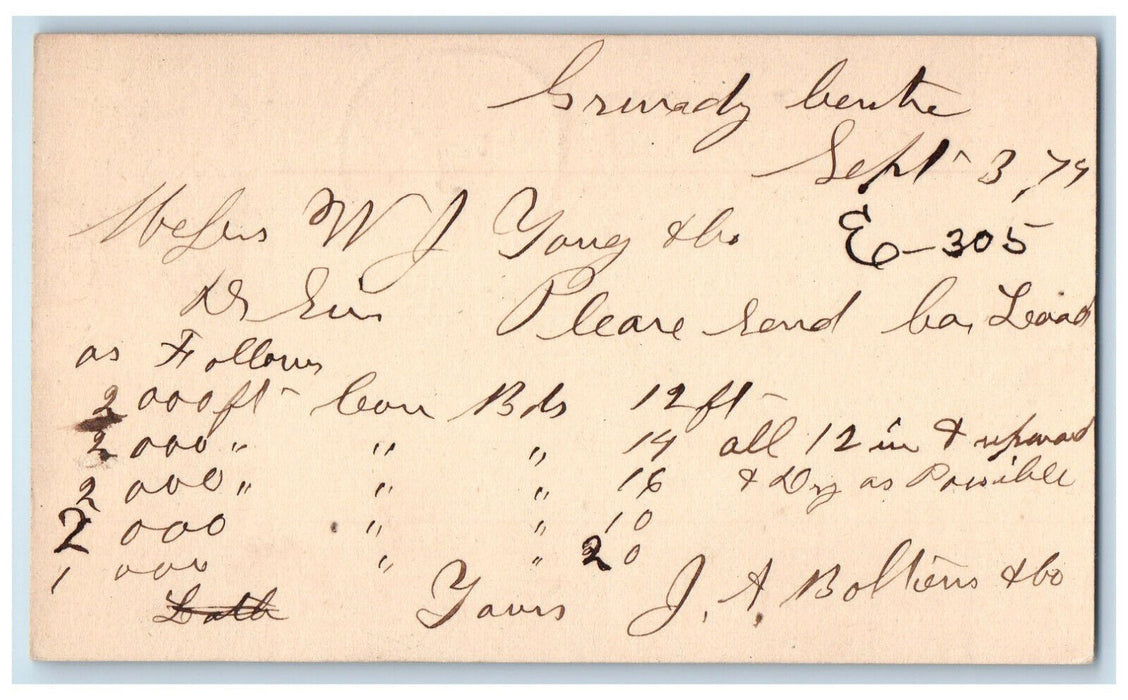 Grundy Centre
Sept 3, 79
Messrs W J Young & Co E-305
Dr Sirs Please send Car Load
as Follows
2000ft Com Bds 12ft
2000 " " " 14 all 12 in & upward
2000 " " " 16 & Dry as Possible
2000 " " 10
1000 " " 20
Lath Yours J. A. Boltens & Co